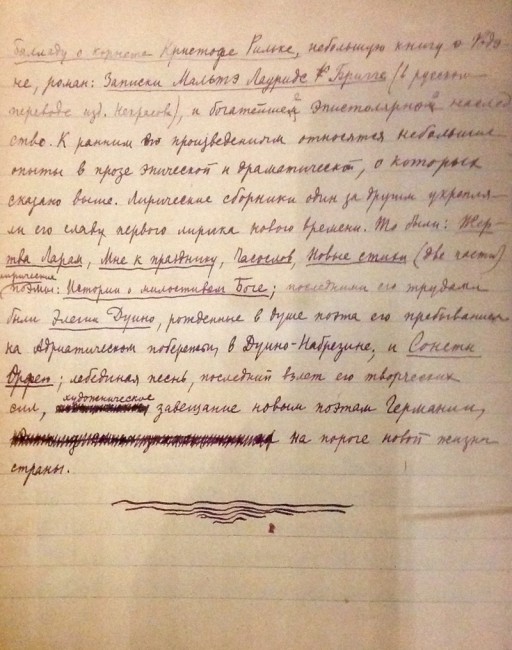 балладу о корнете Кристофе Рильке, небольшую книгу о Родэ-
не, роман: Записки Мальтэ Лауридс Бригге (в русском
переводе изд. Некрасов), и богатейшее эпистолярное наслед
ство. К ранним его произведениям относятся небольшие
опыты в прозе эпической и драматической, о которых
сказано выше. Лирические сборники один за другим укрепля-
ли его славу первого лирика нового времени. То были: Жер-
тва Ларам, Мне к празднику, Часослов, Новые стихи (две части)
лирические
поэмы: Истории о милостивом Боге; последними его трудами
были Элегии Дуино, рожденные в душе поэта его пребыванием
на Адриатическом побережьи, в Дуино-Набрезине, и Сонеты
Орфею; лебединая песнь, последний взлет его творческих
художническое
сил, завещание новым поэтам Германии,
на пороге новой жизни
страны.